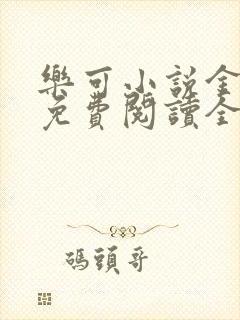 樂可小説全
免費閱讀全
碼頭哥